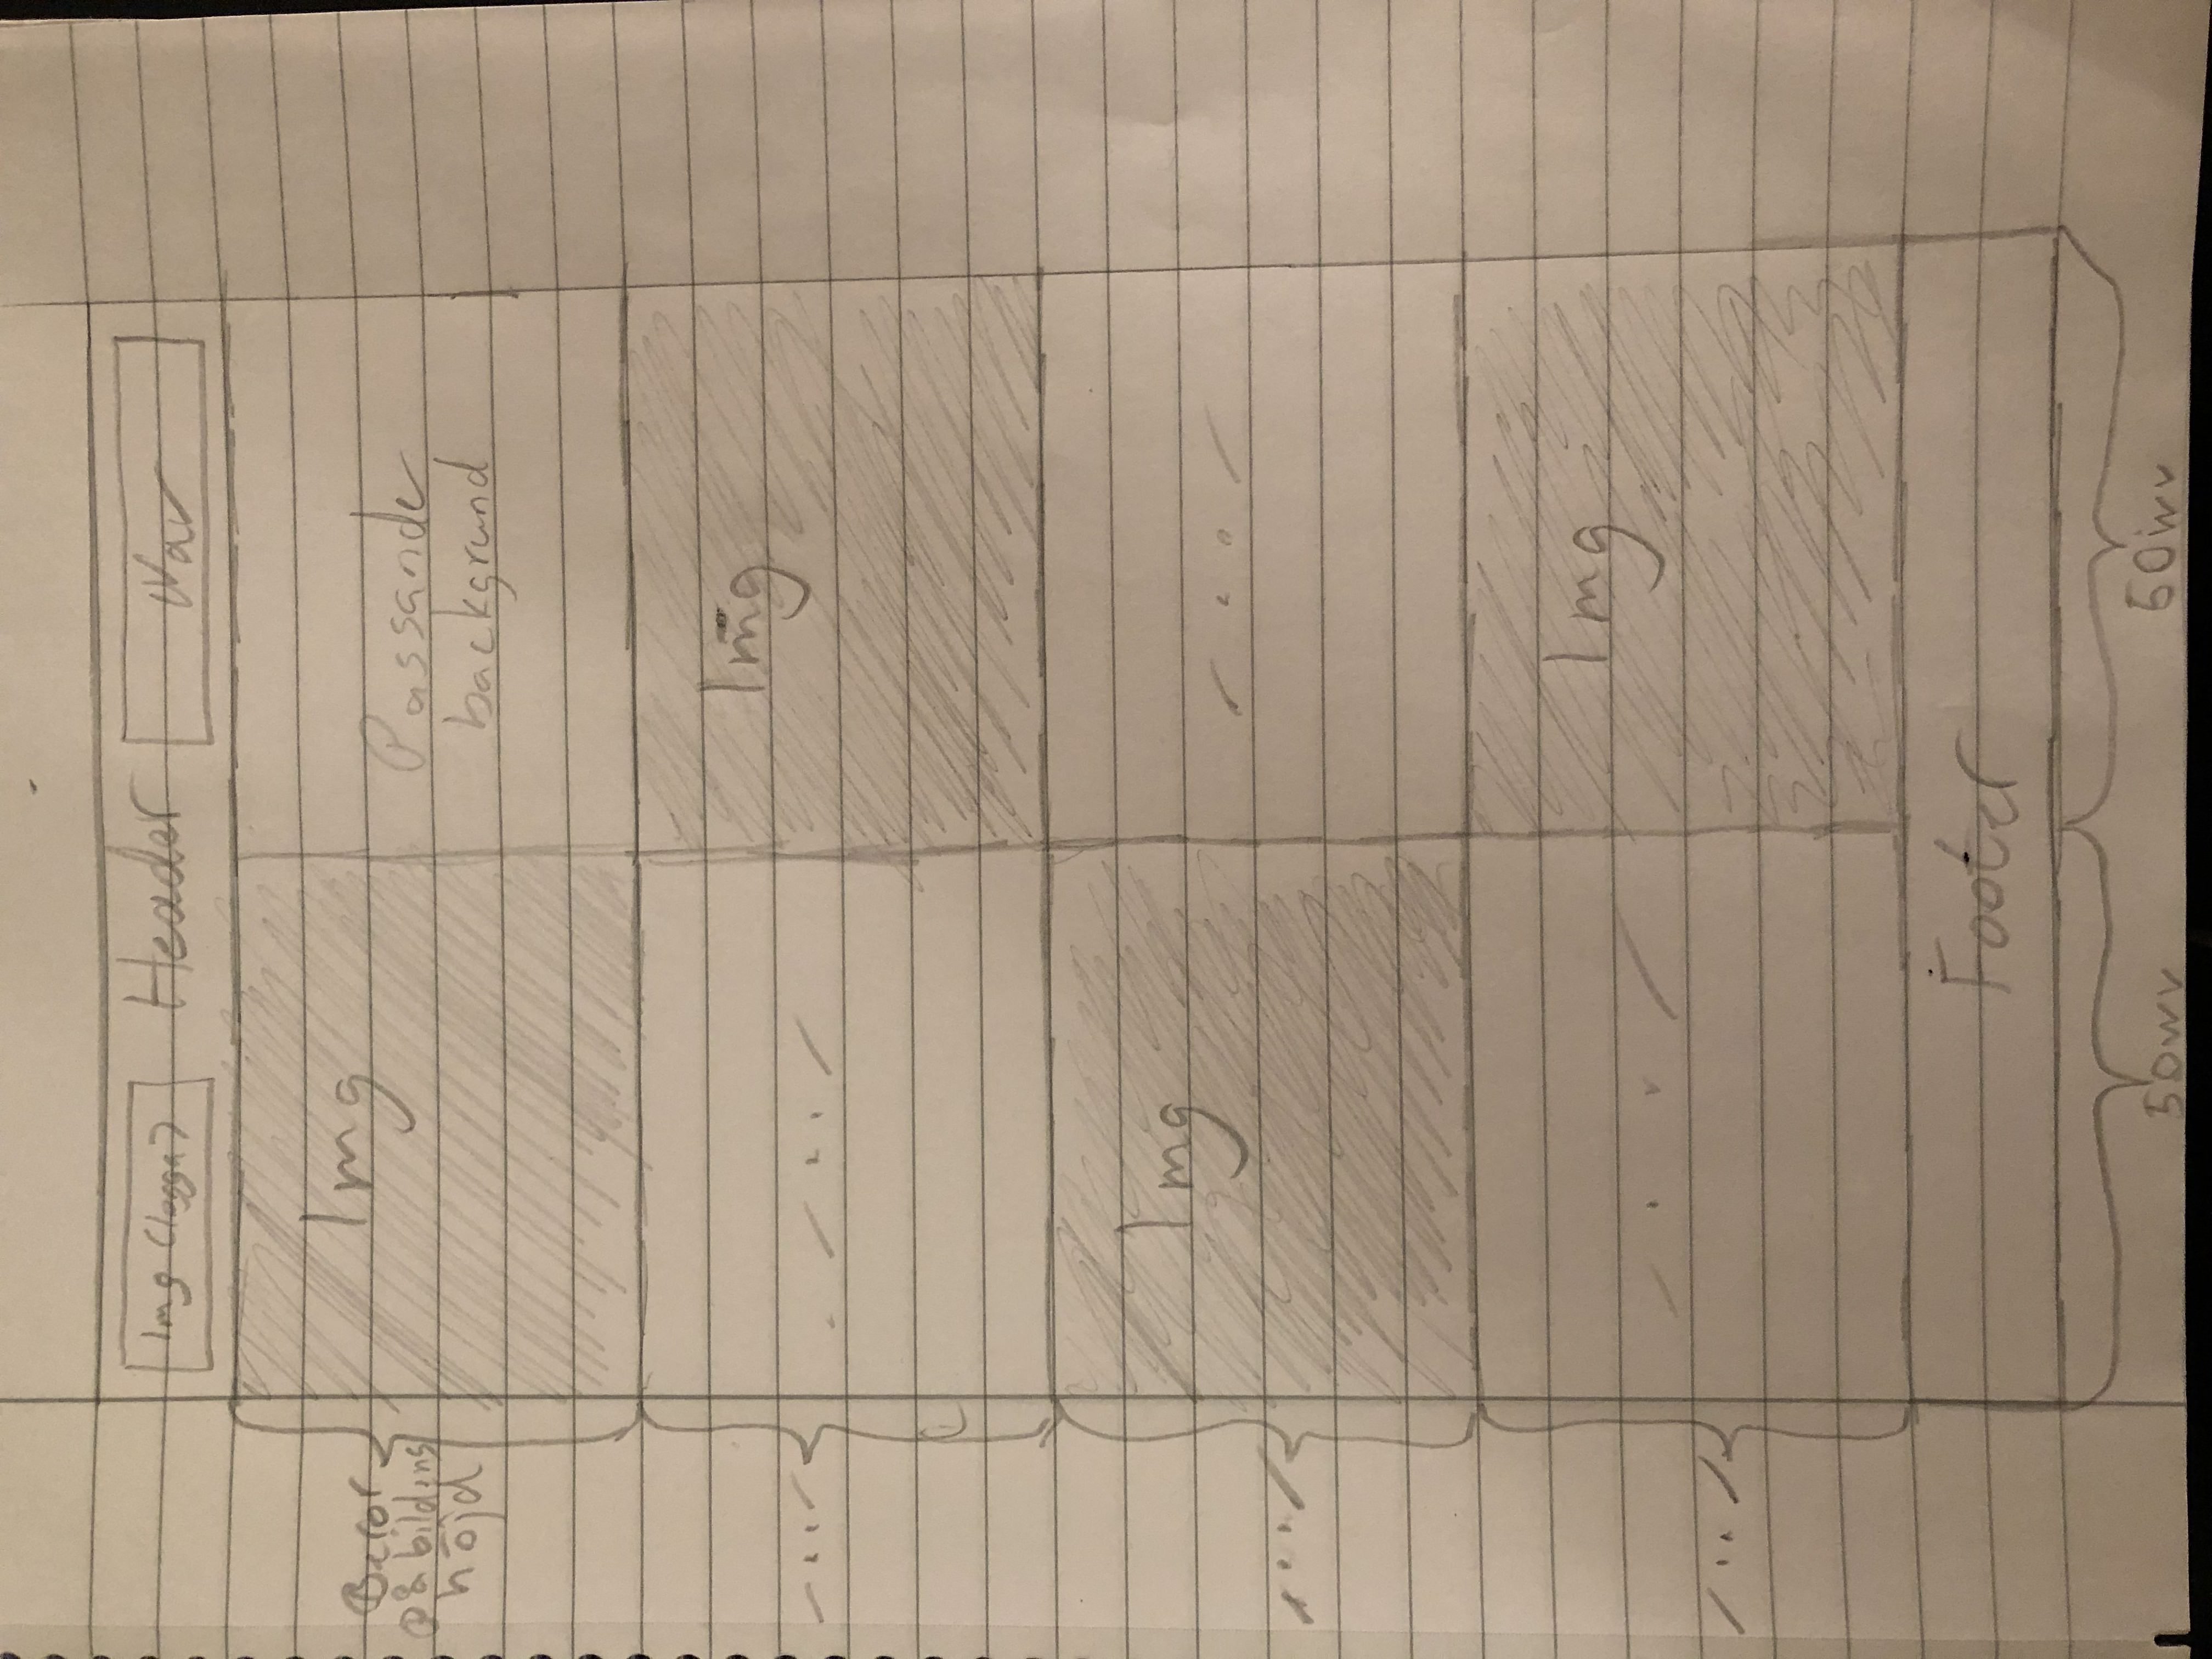 Img (logga) Header Nav
Img
Beror
på bildens
höjd
Passande
backgrund
Img
Img
Img
Footer
50wv 50wv